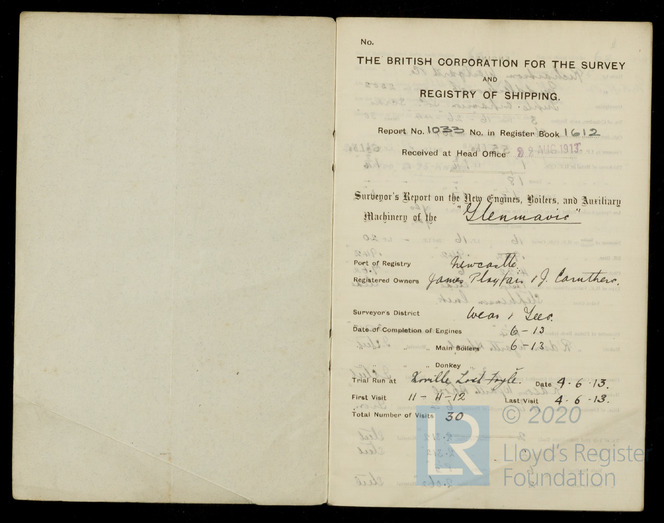 No.
THE BRITISH CORPORATION FOR THE SURVEY
AND
REGISTRY OF SHIPPING.
Report No. 1033 No. in Register Book 1612
Received at Head Office AUG 1913
Surveyor's Report on the New Engines, Boilers, and Auxiliary
Machinery of the "Glenmavis"
Port of Registry Newcastle
Registered Owners James Playfair & J. Caruthers.
Surveyor's District Wear & Tees.
Date of Completion of Engines 6-13
Main Boilers 6-13
Donkey
Trial Run at Date 4.6.13.
First Visit 11-11-12 Last Visit 4.6.13.
Total Number of Visits 30
© 2020
LR Lloyd's Register
Foundation